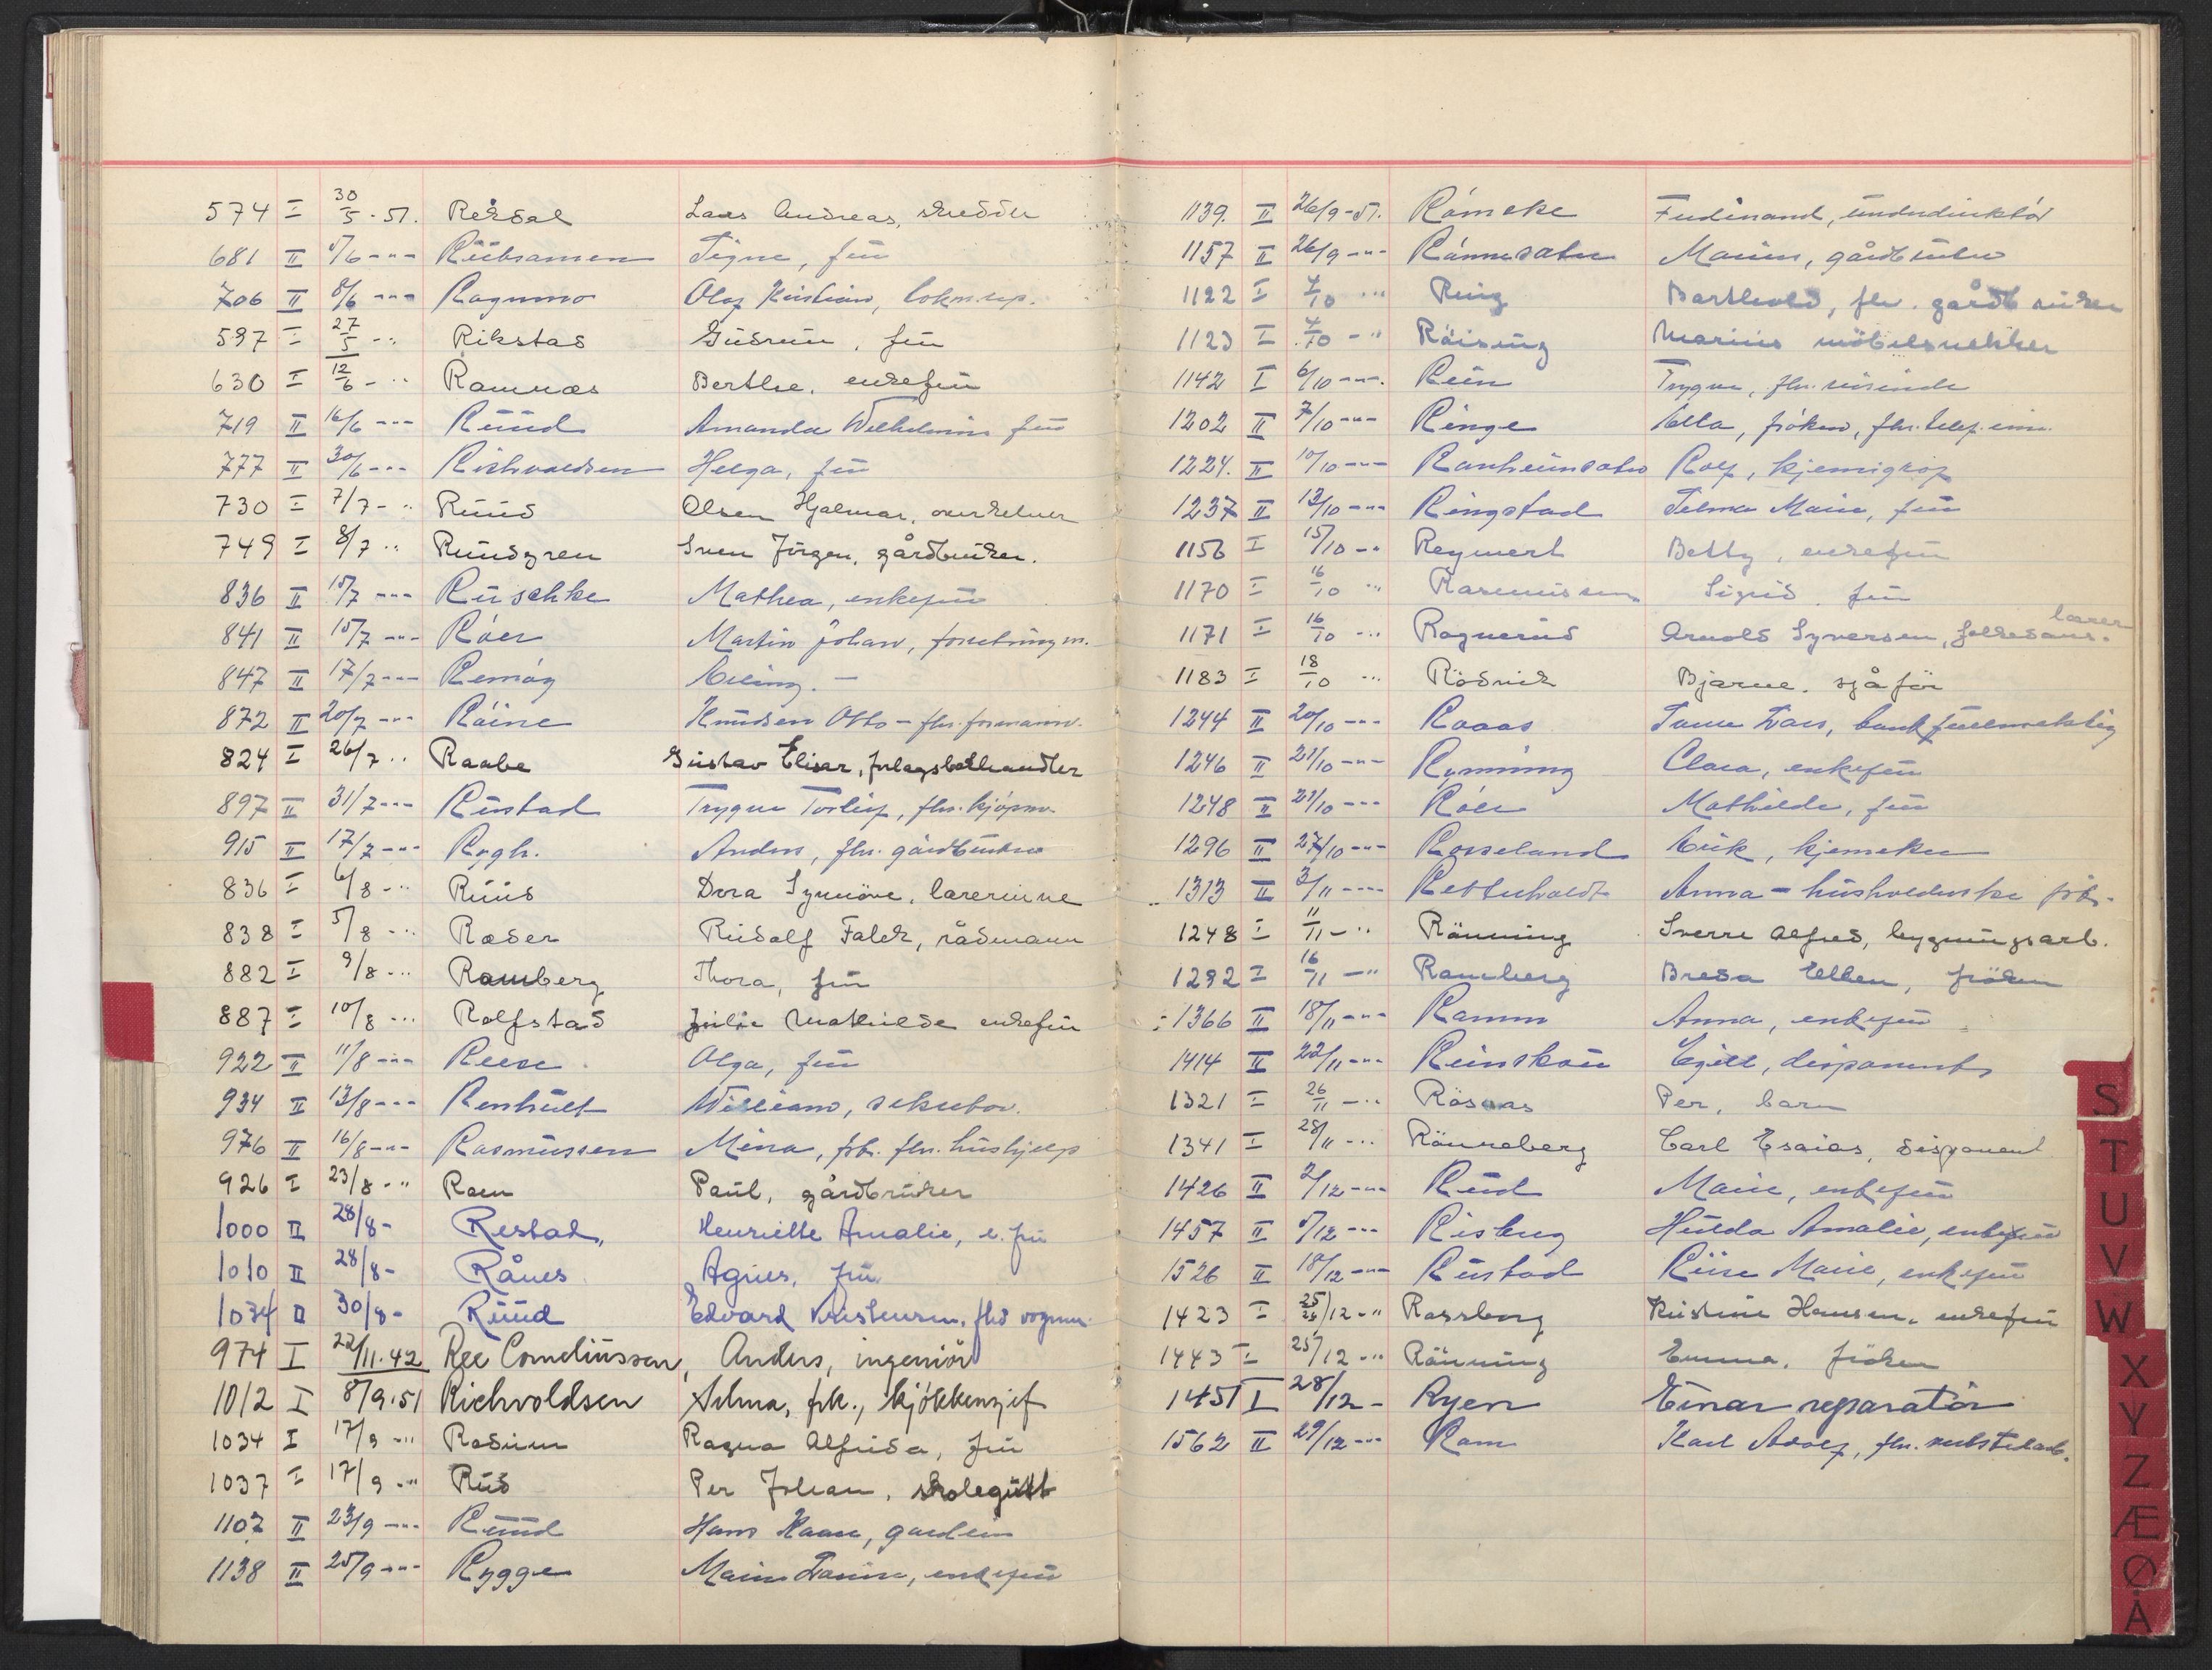 574 I 30/5-51. Rekdal Lars Andreas, skredder
681 II 5/6 -"- Rübsamen Signe, frü
706 II 8/6 -"- Ragnmo Olaf Kristian, lokm.rep.
597 I 27/5 -" Rikstad Güdrün, frü
630 I 12/6 -" Ramnæs Berthe, enkefrü
719 II 16/6 -"- Rüüd Amanda Wilhelmine frü
777 II 30/6 -"- Richvoldsen Helga, frü
730 I 7/7 -" Rüüd Olsen Hjalmar, overkelner
749 I 8/7 " Ründgren Sven Jörgen, gårdbrüker.
836 II 15/7 -"- Rüschke Mathea, enkefrü
841 II 15/7 -"- Róer Martin Johan, forretningsm.
847 II 17/7 -"- Remöy Elling. —
872 II 20/7 -"- Röine Knüdsen Otto - fhv. formann.
824 I 26/7 " Raabe Güstav Elisar, forlagsbokhandler
897 II 31/7 -"- Rüstad Trygve Torleif, fhv. kjøpm.
915 II 17/7 -"- Rygh. Anders, fhv. gårdbrüker
836 I 6/8 -" Rüüd Dora Synnöve, lærerinne
838 I 5/8 -" Ræder Rüdolf Falck, rådmann
882 I 9/8 -" Ramberg Thora, frü
887 I 10/8 -" Rolfstad Julie Mathilde enkefrü
922 II 11/8 -"- Reese Olga, frü
934 II 13/8 -"- Renhült William, sekretær.
976 II 16/8 -"- Rasmüssen Mina, frk. fhv. hüshjelp
926 I 23/8 -" Roen Paül, gårdbrüker
1000 II 28/8- Restad, Henriette Amalie, e.frü
1010 II 28/8- Rånes Agnes, frü
1034 II 30/8- Rüüd Edvard Kristensen, fhv vognm.
974 I 22/11.42 Ree Corneliüssen, Anders, ingeniør
1012 I 8/9.51 Richvoldsen Selma, frk., kjøkkensjef
1034 I 17/9 -" Rodüm Ragna Alfrida, frü
1037 I 17/9 -" Rüd Per Johan, skolegütt
1107 II 23/9 -"- Rüüd Hans Kaare, gardein
1138 II 25/9 -"- Rygge Marie, enkefrü
1139. II 26/9-51. Römcke Ferdinand, ünderdirektör
1157 II 26/9 -"- Rönnesæter Marius, gårdbrüker
1122 I 4/10 " Ring Barthold, fhv. gårdbrüker
1123 I 4/10 -" Röising Marius möbelsnekker
1142 I 6/10 -"- Rein Trygve, fhv. reisende
1202 II 7/10 -"- Ringe Ella, fröken, fhv. telef.
1224. II 10/10 -"- Ranheimsæter Rolf, kjemigraf
1237 II 13/10 -"- Ringstad Selma Marie, frü
1156 I 15/10 -" Reymert Betty, enkefrü
1170 I 16/10 " Rasmüssen Sigrid, frü
1171 I 16/10 -" Ragnerüd Arnold Syversen, folkedans. lærer
1183 I 18/10 " Rödvik Bjarne, sjåför
1244 II 20/10 -"- Raaas Lars, bankfüllmektig
1246 II 21/10 -"- Rynning Clara, enkefrü
1248 II 21/10 -"- Róer Mathilde, frü
1296 II 27/10 -"- Rosseland Erik, kjemeker
1313 II 3/11 -"- Rettenholdt Anna - hüsholderske frk.
1248 I 11/11 -" Rönning Sverre Alfred, bygningsarb.
1292 I 16/11 -" Ramberg Breda Ellen, fröken
1366 II 18/11 -"- Ramm Anna, enkefrü
1414 II 22/11 -"- Reinskoü Egill, disponent
1321 I 26/11 -" Rösaas Per, barn
1341 I 28/11 -" Rönneberg Carl Esaias, disponent
1426 II 2/12 -"- Rüd Marie, enkefrü
1457 II 5/12 -"- Risberg Hülda Amalie, enkefrü
1526 II 18/12 -"- Rüstad Marie, enkefrü
1423 I 25/12 -" Rassborg Kristine Hansen, enkefrü
1443 I 25/12 -" Rönning Emma, fröken
1451 I 28/12 - Ryen Einar reparatör
1562 II 29/12 -"- Ram Karl Adolf, fhv. verkstedarb.
S
T
U
V
W
X
Y
Z
Æ
Ø
Å